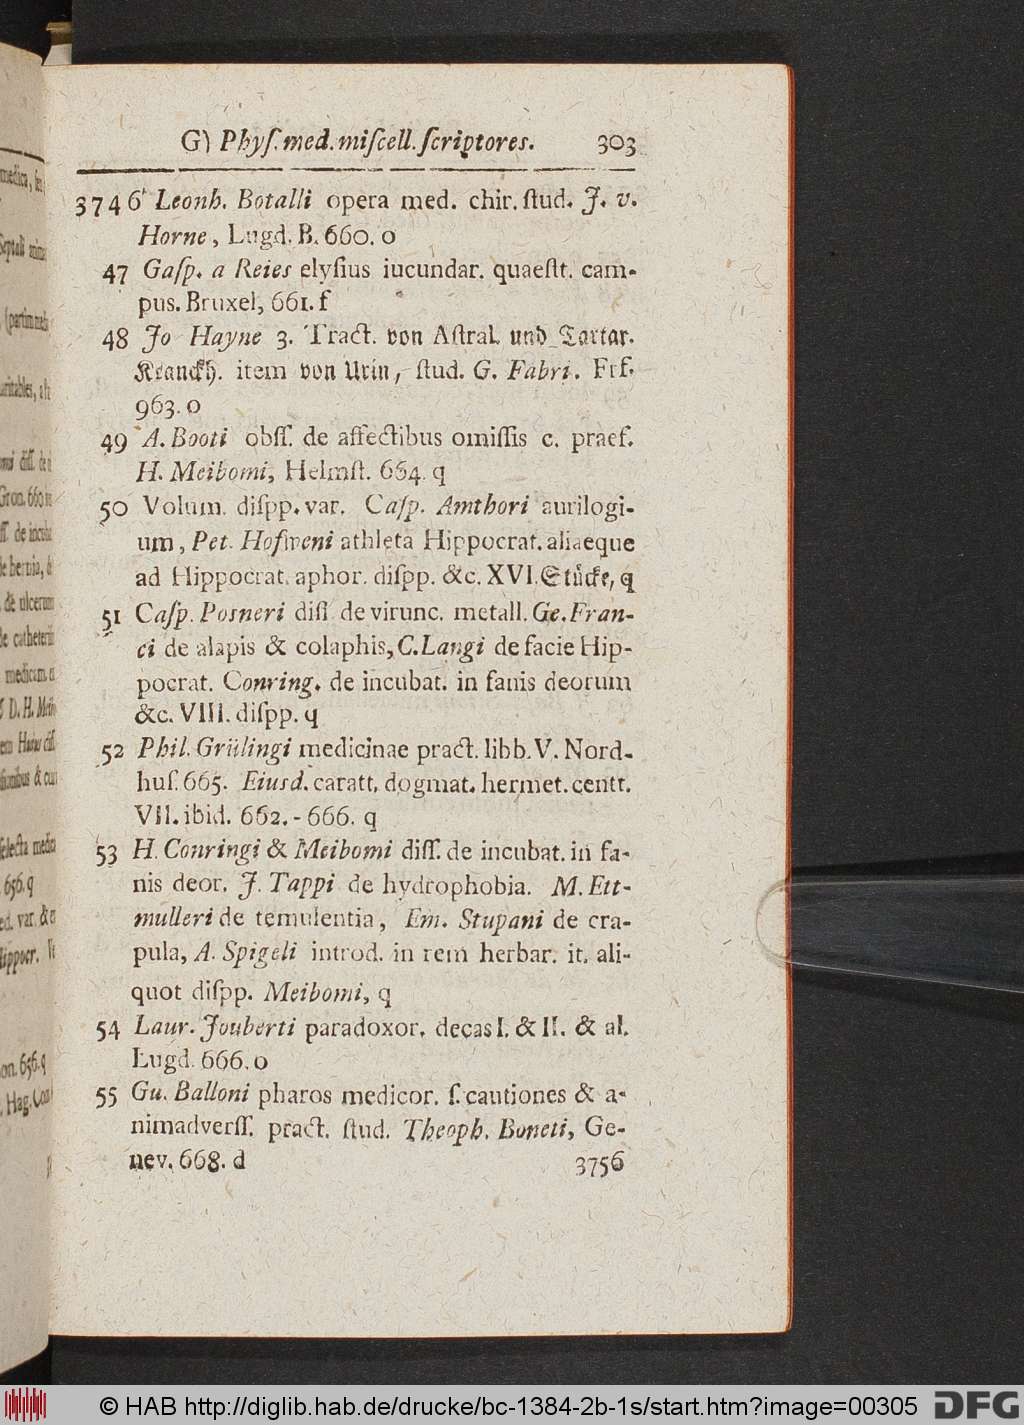 G) Phyſ. med. miſcell. ſcriptores. 303
3746 Leonh. Botalli opera med. chir. ſtud. J. v.
Horne, Lugd. B. 660. o
47 Gaſp. a Reies elyſius iucundar. quaeſt. cam-
pus. Bruxel, 661. f
48 Jo Hayne 3. Tract. von Aſtral. und Tartar.
Kranckh. item von Urin, ſtud. G. Fabri. Frf.
963. o
49 A. Booti obſſ. de affectibus omiſſis c. praef.
H. Meibomi, Helmſt. 664. q
50 Volum. diſpp. var. Caſp. Amthori aurilogi-
um, Pet. Hofweni athleta Hippocrat. aliaeque
ad Hippocrat. aphor. diſpp. &c. XVI. Stuͤcke, q
51 Caſp. Posneri diſſ de virunc. metall. Ge. Fran-
ci de alapis & colaphis, C. Langi de facie Hip-
pocrat. Conring. de incubat. in fanis deorum
&c. VIII. diſpp. q
52 Phil. Grülingi medicinae pract. libb. V. Nord-
huſ. 665. Eiusd. caratt. dogmat. hermet. centr.
VII. ibid. 662. - 666. q
53 H. Conringi & Meibomi diſſ. de incubat. in fa-
nis deor. J. Tappi de hydrophobia. M. Ett-
mulleri de temulentia, Em. Stupani de cra-
pula, A. Spigeli introd. in rem herbar. it. ali-
quot diſpp. Meibomi, q
54 Laur. Jouberti paradoxor. decas I. & II. & al.
Lugd. 666. o
55 Gu. Balloni pharos medicor. ſ. cautiones & a-
nimadverſſ. pract. ſtud. Theoph. Boneti, Ge-
nev. 668. d
3756
© HAB http://diglib.hab.de/drucke/bc-1384-2b-1s/start.htm?image=00305
DFG